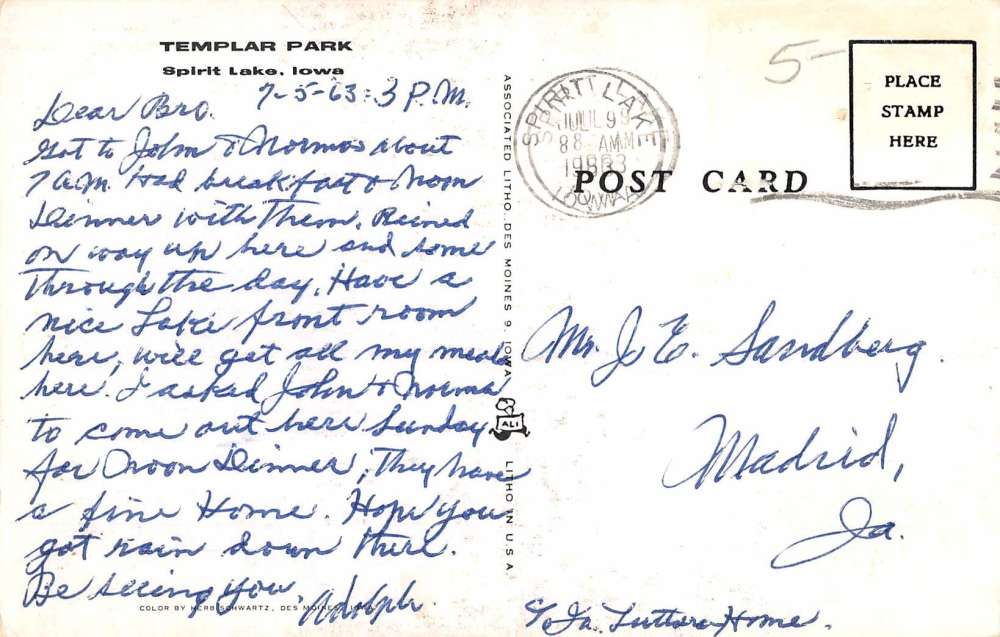 TEMPLAR PARK
Spirit Lake, Iowa
7-5-63: 3 P.M.
Dear Bro.
Got to John & Normas about
7 a.m. Had breakfast & Noon
Dinner with Them. Rained
on way up here and some
Through The day. Have a
nice Lake front room
here, will get all my meals
here. I asked John & Norma
to come out here Sunday
for Noon Dinner, They have
a fine Home. Hope you
got rain down There.
Be seeing you.
Adolph.
COLOR BY HERB SCHWARTZ, DES MOINES,
ASSOCIATED LITHO., DES MOINES 9, IOWA
ALI
LITHO IN U.S.A.
SPIRIT LAKE
JUL 9
8-AM
1963
IOWA
5-
PLACE
STAMP
HERE
POST CARD
Mr. J. E. Sandberg.
Madrid,
Ia.
c/o Ia. Luthern Home.